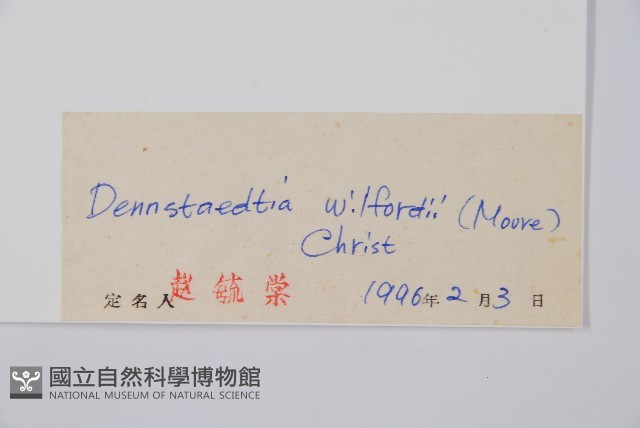 Dennstaedtia wilfordii (Moore)
Christ
定名人 赵毓棠 1996年2月3日
國立自然科學博物館
NATIONAL MUSEUM OF NATURAL SCIENCE